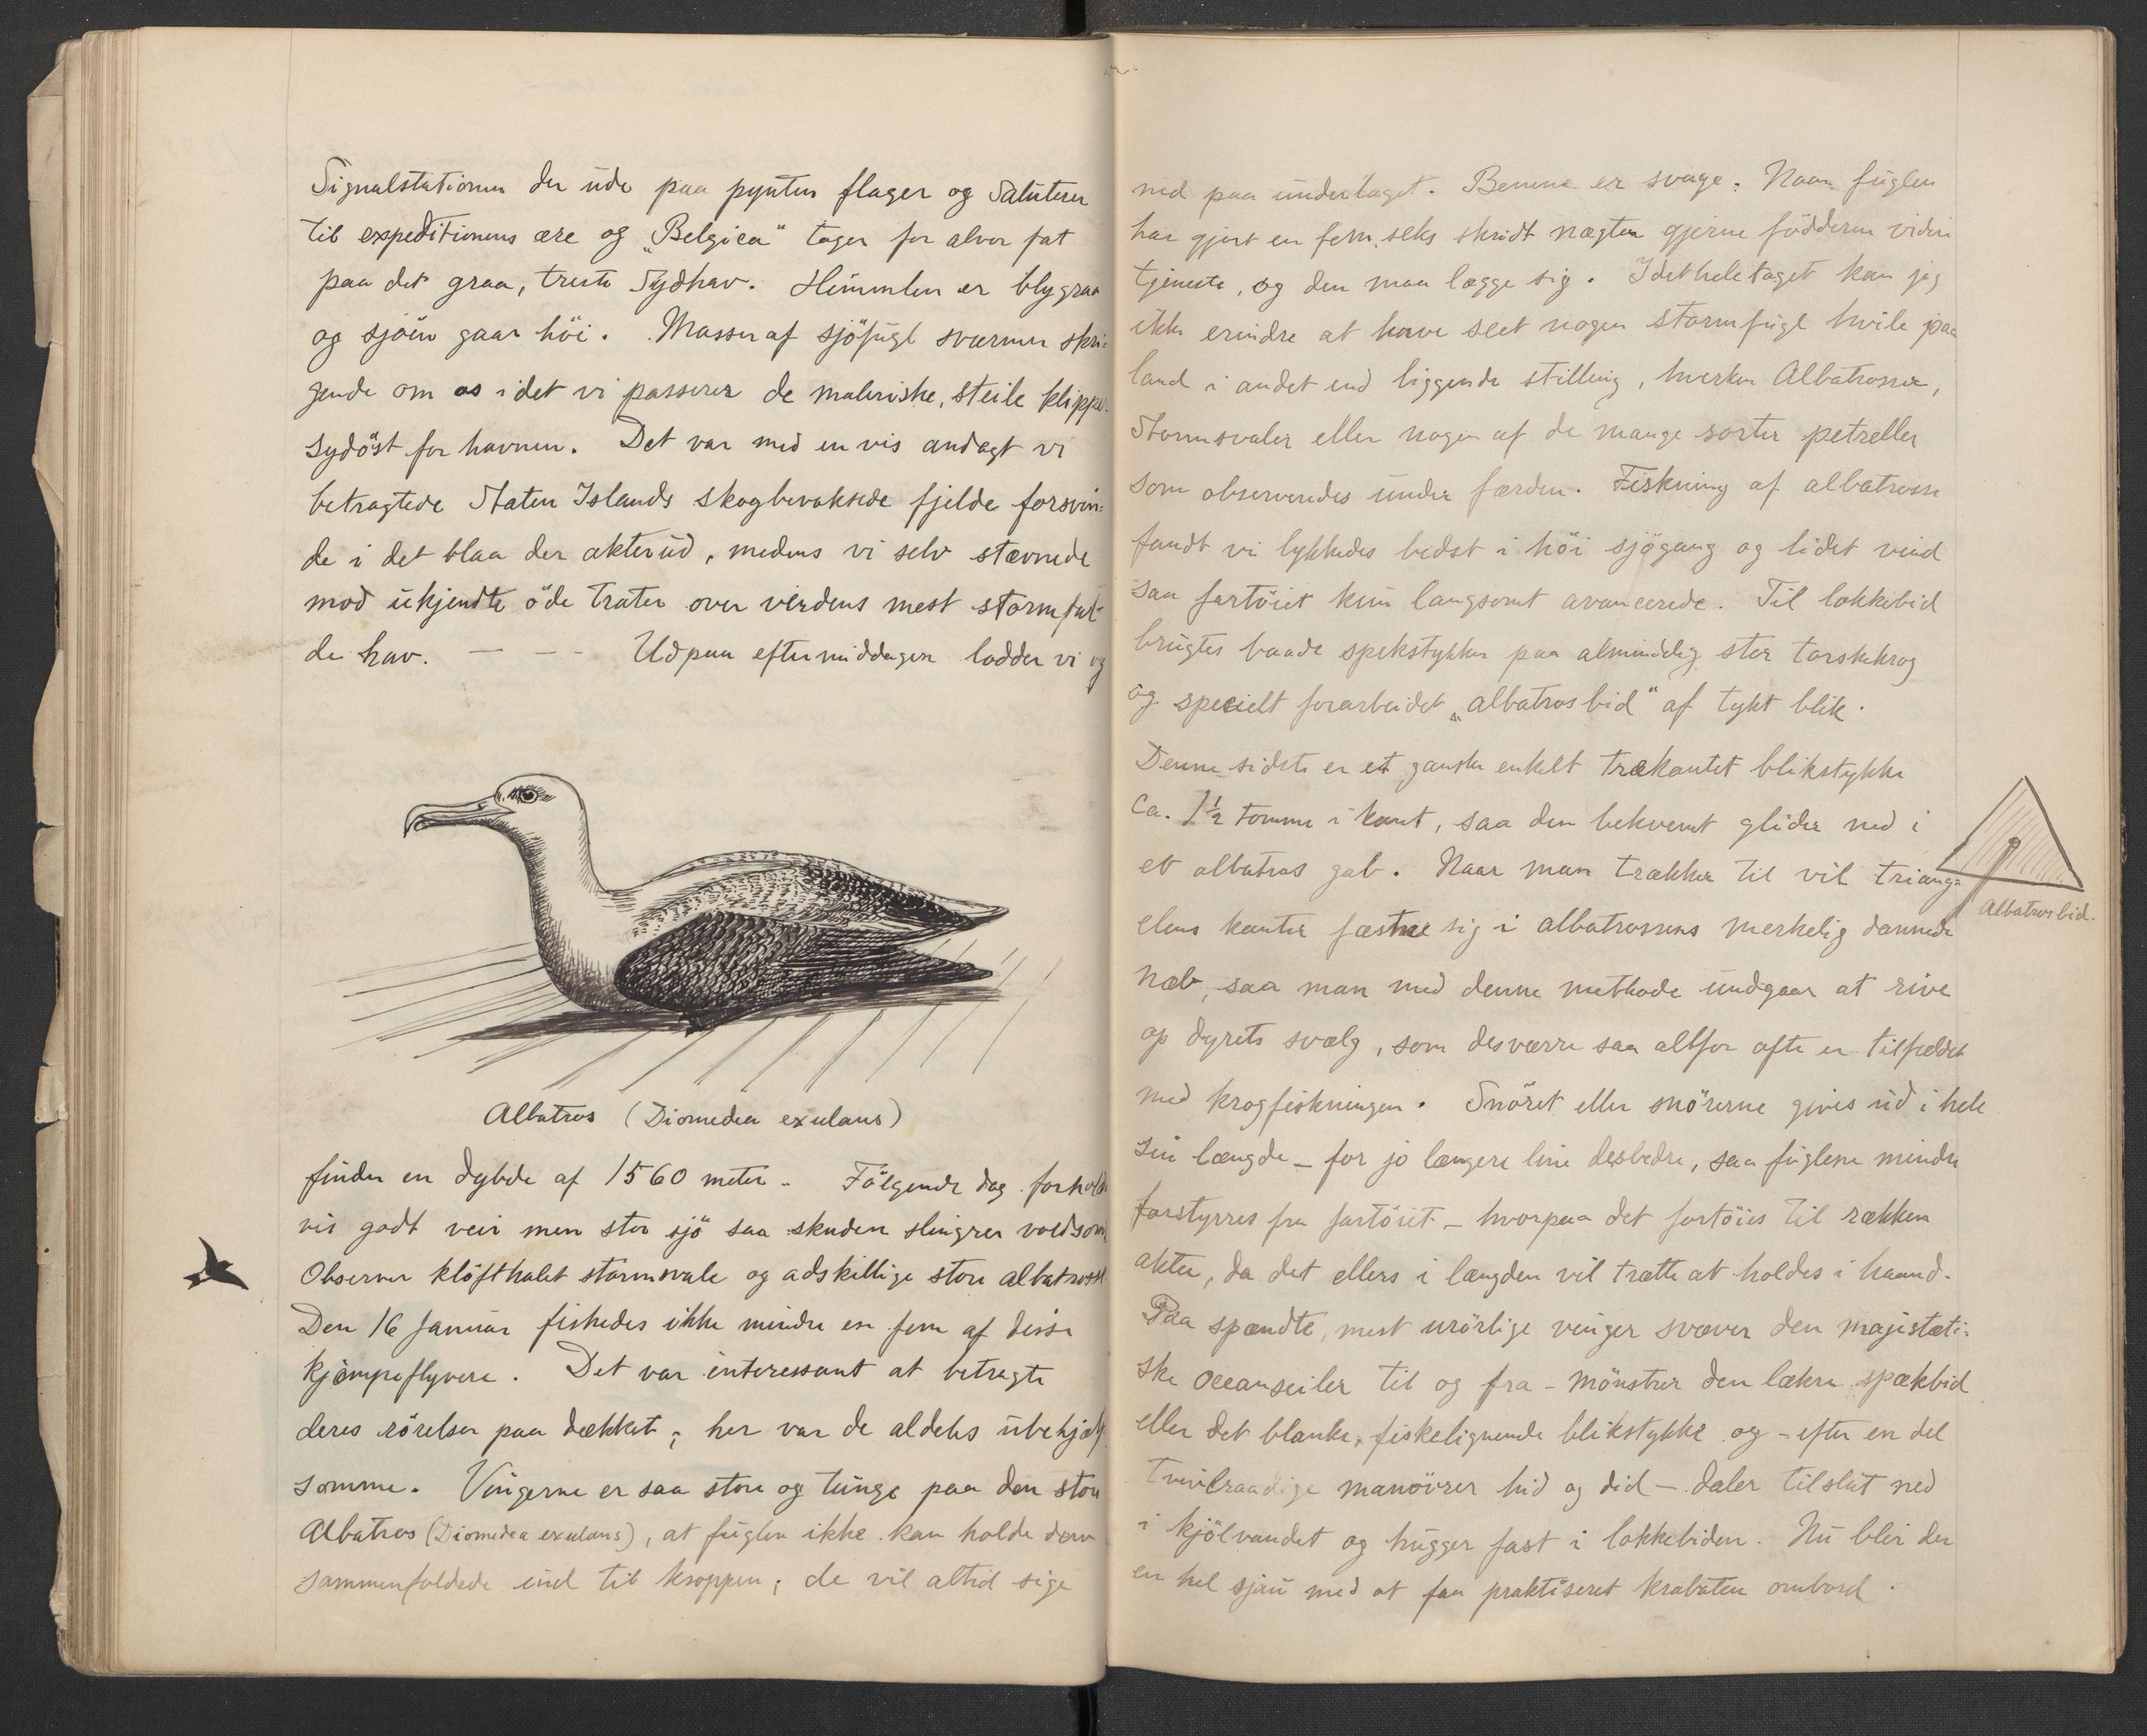 Signalstationen der ude paa pynten flager og saluterer
til expeditionens ære og „Belgica" tager for alvor fat
paa det graa, triste Sydhav. Himmlen er blygraa
og sjöen gaar höi. Masser af sjöfugl sværmer skri-
gende om os idet vi passerer de maleriske, steile klipper
sydöst for havnen. Det var med en vis andagt vi
betragtede Staten Islands skogbevoksede fjelde forsvin-
de i det blaa der akterud, medens vi selv stævnede
mod ukjendte öde trakter over verdens mest stormful-
de hav. — — - Udpaa eftermiddagen lodder vi og
Albatros (Diomedea exulans)
finder en dybde af 1560 meter. Fölgende dag forholds
vis godt veir men stor sjö saa skuden slingrer voldsomt
Observer klöfthalet stormsvale og adskillige store albatrosser
Den 16 Januar fiskedes ikke mindre en fem af disse
kjæmpeflyvere. Det var interessant at betragte
deres rörelser paa dækket; her var de aldeles ubehjælp
somme. Vingerne er saa store og tunge paa den store
Albatros (Diomedea exulans), at fuglen ikke kan holde dem
sammenfoldede ind til kroppen; de vil altid sige
ned paa underlaget. Benene er svage. Naar fuglen
har gjort en fem, seks skridt nægter gjerne födderne videre
tjeneste, og den maa lægge sig. Idetheletaget kan jeg
ikke erindre at have seet nogen stormfugl hvile paa
land i andet end liggende stilling, hverken Albatrosser,
Stormsvaler eller nogen af de mange sorter petreller
som observeredes under færden. Fiskning af albatrosse
fandt vi lykkedes bedst i höi sjögang og lidet vind
saa fartöiet kun langsomt avancerede. Til lokkebid
brugtes baade spekstykker paa almindelig stor torskekrog
og specielt forarbeidet „albatrosbid" af tykt blik.
Denne sidste er et ganske enkelt trækantet blikstykke
ca. 1½ tomme i kant, saa den bekvemt glider ned i
et albatros gab. Naar man trækker til vil triang-
Albatrosbid.
elens kanter fæstne sig i albatrossens merkelig dannede
næb, saa man med denne methode undgaar at rive
op dyrets svælg, som desværre saa altfor ofte er tilfældet
med krogfiskningen. Snöret eller snörerne gives ud i hele
sin længde – for jo længere line desbedre, saa fuglene mindre
forstyrres fra fartöiet – hvorpaa det fortöies til rækken
akter, da det ellers i længden vil trætte at holdes i haand.
Paa spændte, mest urörlige vinger svæver den majestæti-
ske oceanseiler til og fra – mönstrer den lækre spækbid
eller det blanke, fiskelignende blikstykke og – efter en del
tvivlraadige manövrer hid og did – daler tilslut ned
i kjölvandet og hugger fast i lokkebiden. Nu blir der
en hel sjau med at faa praktiseret krabaten ombord.